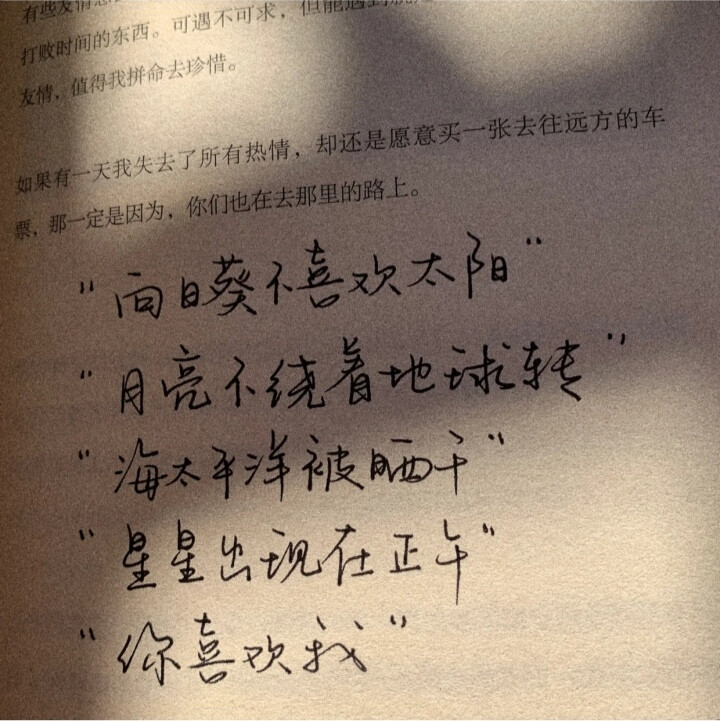 有些友情
打败时间的东西。可遇不可求，但能遇到
友情，值得我拼命去珍惜。
如果有一天我失去了所有热情，却还是愿意买一张去往远方的车
票，那一定是因为，你们也在去那里的路上。
"向日葵不喜欢太阳"
"月亮不绕着地球转"
"海太平洋被晒干"
"星星出现在正午"
"你喜欢我"